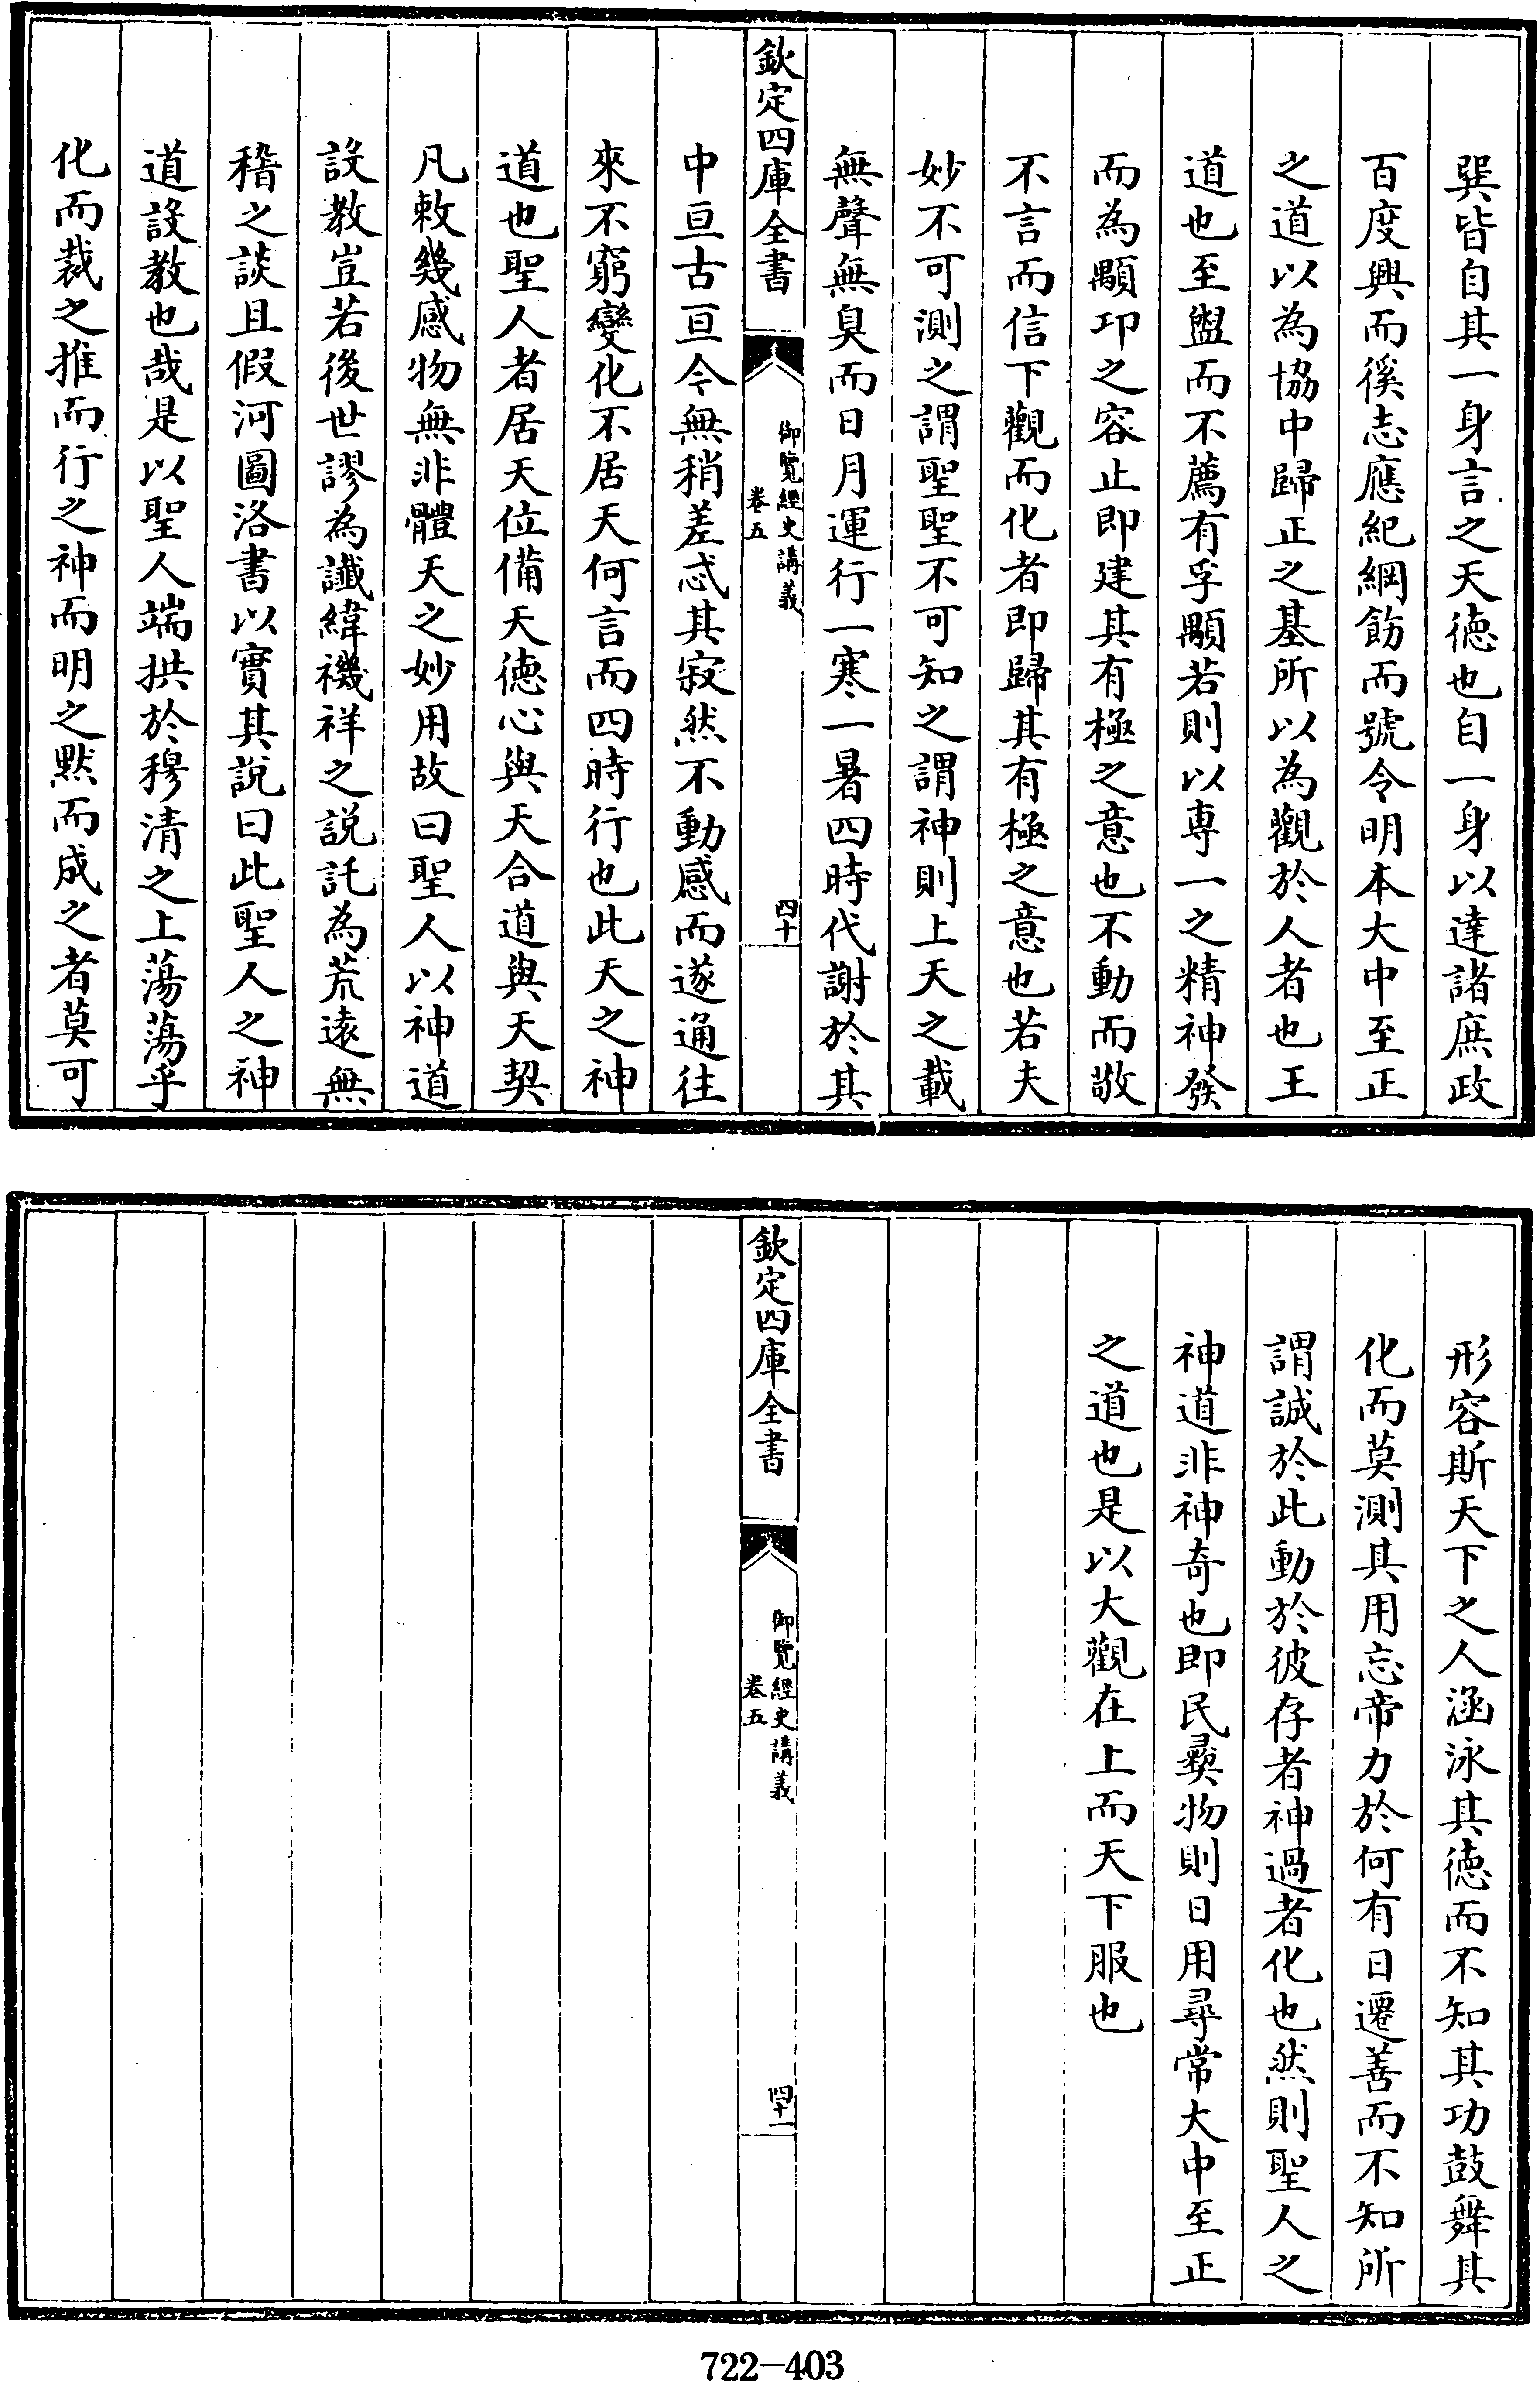 巽皆自其一身言之天徳也自一身以達諸庶政
百度興而徯志應紀綱飭而號令明本大中至正
之道以為協中歸正之基所以為觀於人者也王
道也至盥而不薦有孚顒若則以専一之精神發
而為顒卬之容止即建其有極之意也不動而敬
不言而信下觀而化者即歸其有極之意也若夫
妙不可測之謂聖聖不可知之謂神則上天之載
無聲無臭而日月運行一寒一暑四時代謝於其
欽定四庫全書
御覽經史講義
卷五
四十
中亘古亘今無稍差忒其寂然不動感而遂通往
來不窮變化不居天何言而四時行也此天之神
道也聖人者居天位備天徳心與天合道與天契
凡敕幾感物無非體天之妙用故曰聖人以神道
設教豈若後世謬為讖緯禨祥之説託為荒逺無
稽之談且假河圖洛書以實其說曰此聖人之神
道設教也哉是以聖人端拱於穆清之上蕩蕩乎
化而裁之推而行之神而明之黙而成之者莫可
形容斯天下之人涵泳其徳而不知其功鼓舞其
化而莫測其用忘帝力於何有日遷善而不知所
謂誠於此動於彼存者神過者化也然則聖人之
神道非神奇也即民彛物則日用尋常大中至正
之道也是以大觀在上而天下服也
欽定四庫全書
御覽經史講義
卷五
四十一
722-403